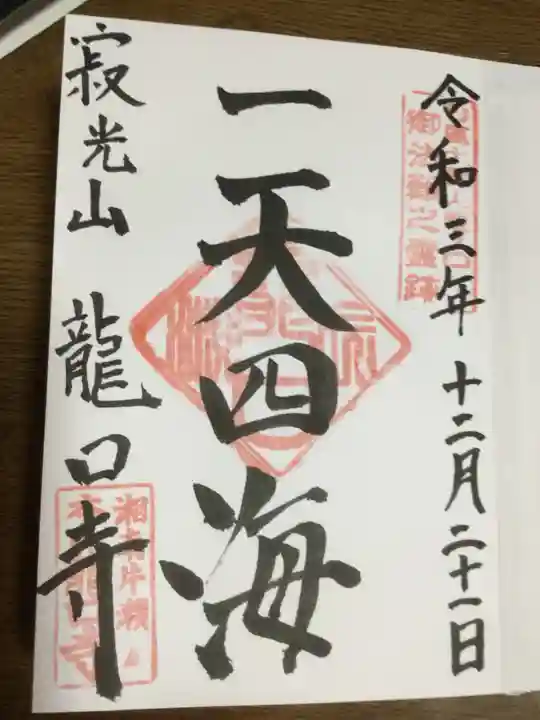 令和三年 十二月二十一日
御法難之霊跡
一天四海
寂光山 龍口寺
湘南片瀬